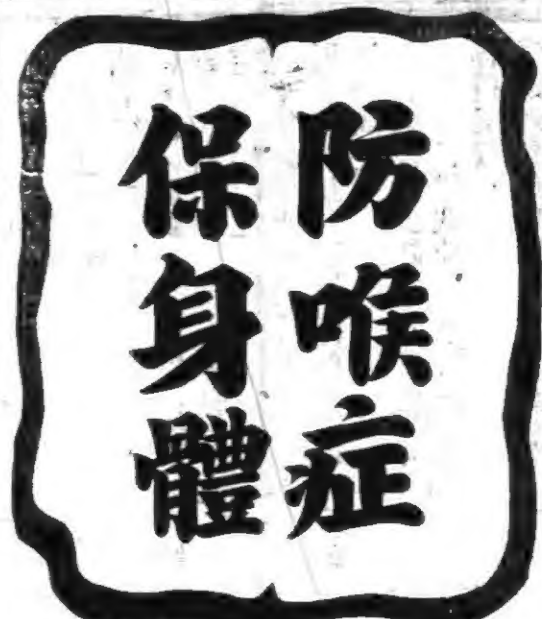 防喉症
保身體